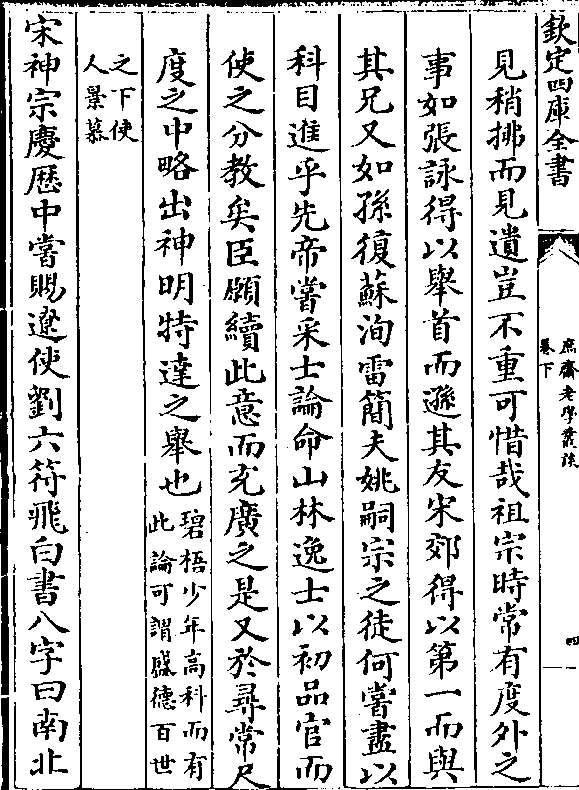 欽定四庫全書
庶齋老學叢談
卷下
四
見稍拂而見遺豈不重可惜哉祖宗時常有度外之
事如張詠得以舉首而遜其友宋郊得以第一而與
其兄又如孫復蘇洵雷簡夫姚嗣宗之徒何嘗盡以
科目進乎先帝嘗采士論命山林逸士以初品官而
使之分教矣臣願續此意而充廣之是又於尋常尺
度之中略出神明特達之舉也
碧梧少年高科而有
此論可謂盛德百世
之下使
人景慕
宋神宗慶歷中嘗賜遼使劉六符飛白書八字曰南北